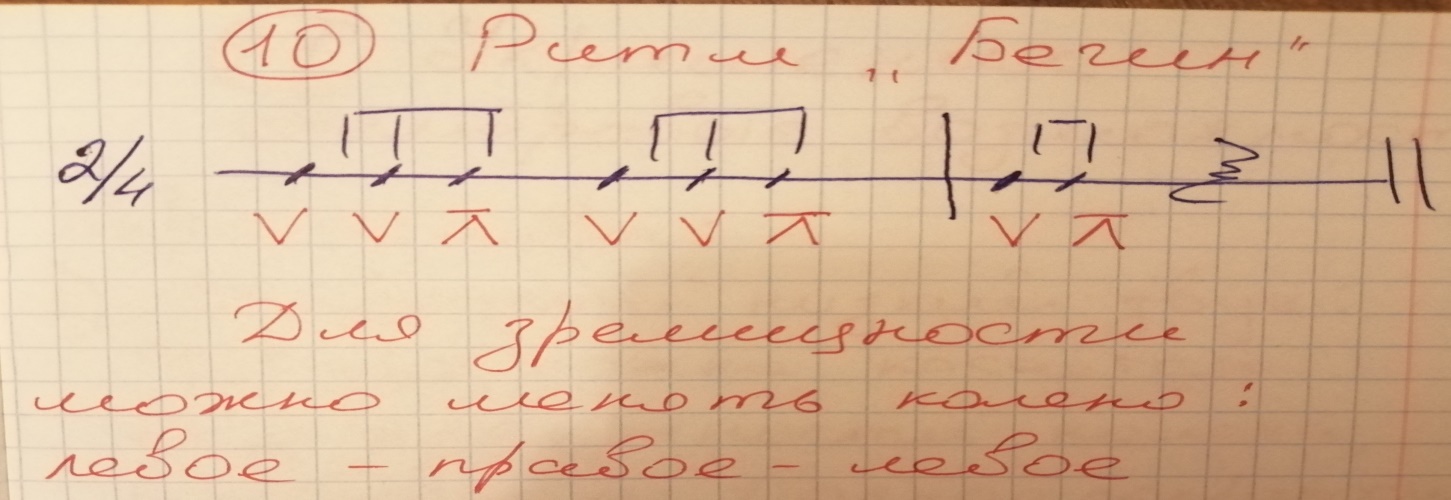 10 Ритм „Бегин"
2/4
V V V V V
Для зрелищности
можно менять колено:
левое - правое - левое